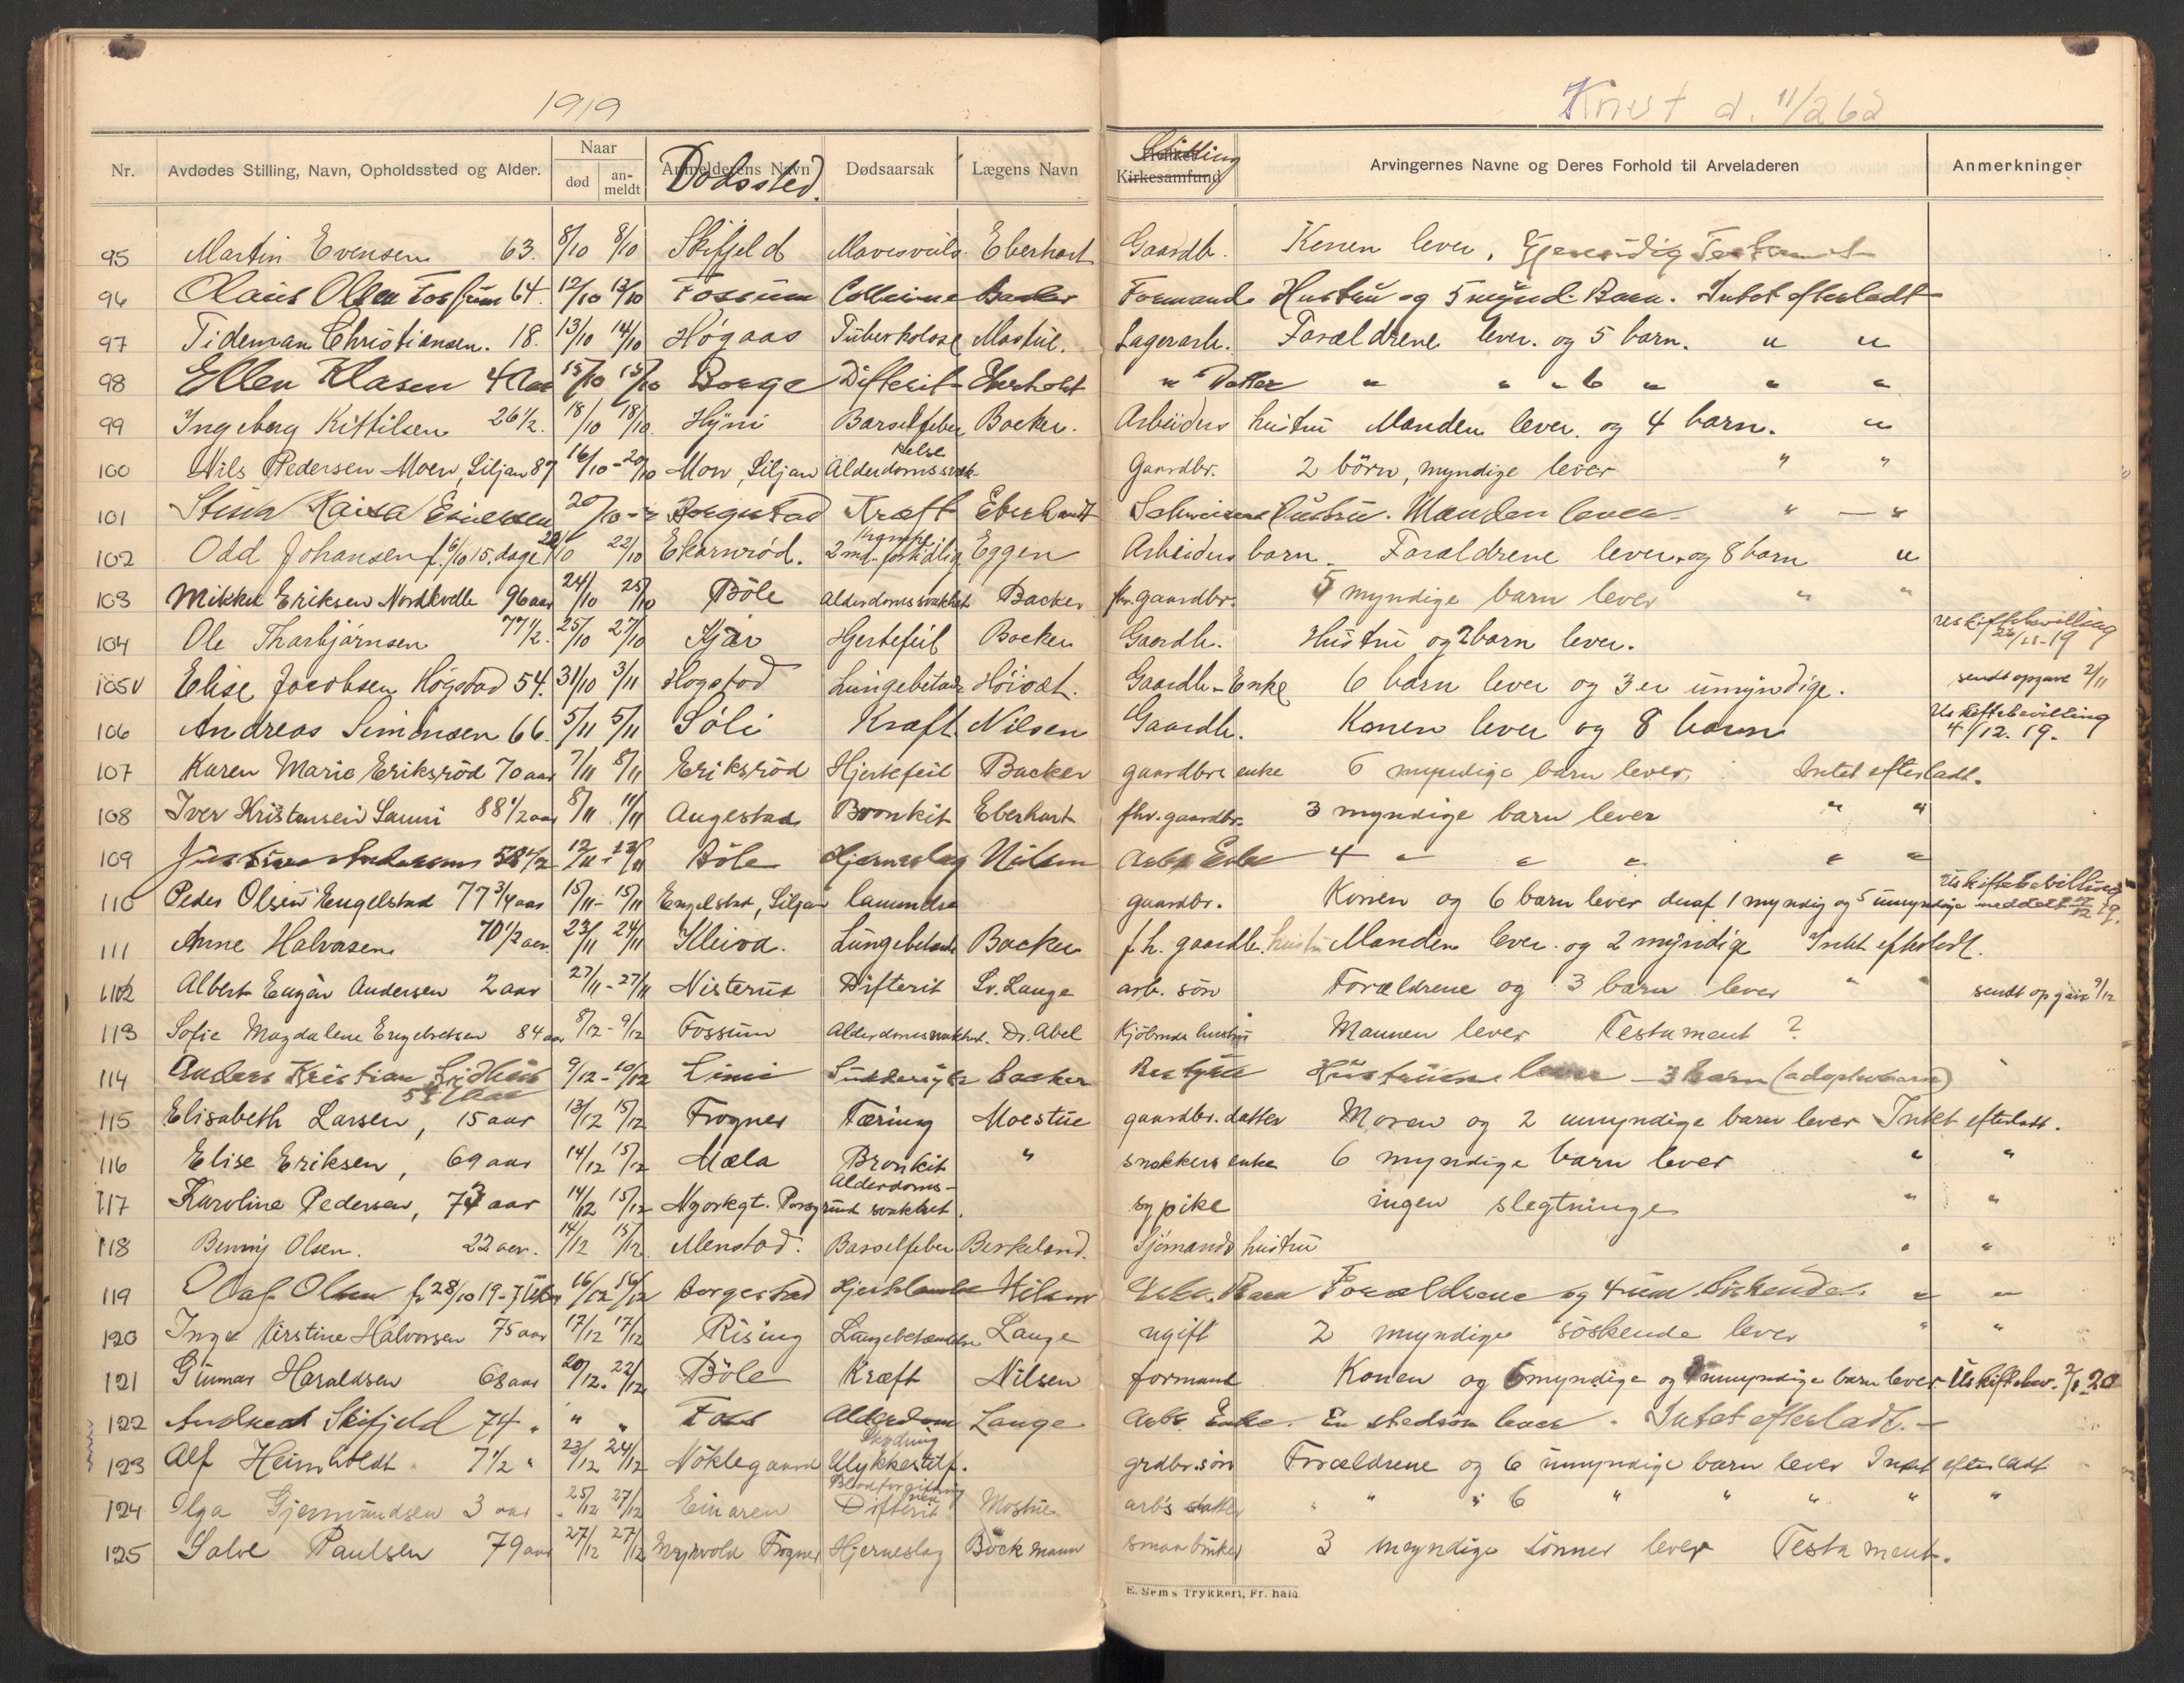 1919
Knut d. 11/2 62
Nr. Avdødes Stilling, Navn, Opholdssted og Alder. Naar død an-meldt Anmelderens Navn Dødssted. Dødsaarsak Lægens Navn Hvilket Kirkesamfund Stilling Arvingernes Navne og Deres Forhold til Arveladeren Anmerkninger
95 Martin Evensen 63. 8/10 8/10 Skifjeld Eberhart Gaardb. Konen lever, Gjensidig Testament
96 Olaus Olsen Fossum 64. 12/10 13/10 Fossum Backer Formand Hustru og 5 mynd. Barn. Intet efterladt
97 Tideman Christiansen. 18. 13/10 14/10 Høgaas Tuberkolose Mostue. Lagerarb. Forældrene lever. og 5 barn. " "
98 Ellen Klasen 4 aar 15/10 15/10 Borge Difterit Eberhart " Datter " " " 6 " " "
99 Ingeborg Kittilsen 26 1/2. 18/10 18/10. Hyni Barselfeber Backer. Arbeiders hustru Manden lever. og 4 barn. "
100 Nils Pedersen Moen, Siljan 87 16/10 - 20/10 Mon, Siljan Alderdomssvækkelse Gaardbr. 2 börn, myndige lever " "
101 Stina Kaisa 20/10 - " Borgestad Kræft Eberhardt Schweisers Hustru. Manden lever " — "
102 Odd Johansen f. 6/10 15. dage 22/10 22/10 Ekornrød. Krampe 2 md. for tidlig Eggen Arbeiders barn. Forældrene lever. og 8 barn "
103 Mikkel Eriksen Nordkvelle 96 aar 24/10 25/10 Böle Alderdomssvakhet Backer fhv. gaardbr. 5 myndige barn lever " "
104 Ole Thorbjørnsen 77 1/2. 25/10 27/10 Kjær Hjertefeil Backer Gaardb. Hustru og 2 barn lever. Uskiftebevilling
105 V Elise Jacobsen Högstad 54. 31/10 3/11 Hogstad Lungebetænd. Gaardb. - Enke 6 barn lever og 3 er umyndige. sendt opgave 2/11
106 Andreas Simonsen 66. 5/11 5/11 Söli Kræft Nilsen Gaardb. Konen lever og 8 barn Uskiftebevilling 4/12. 19.
107 Karen Marie Eriksröd 70 aar 7/11 8/11 Eriksröd Hjertefeil Backer gaardbrs enke 6 myndige barn lever. Intet efterladt.
108 Iver Kristensen Sanni 88 1/2 aar 8/11 11/11 Augestad Bronkit Eberhart fhv. gaardbr. 3 myndige barn lever " "
109 Justine Andersen 58 1/2 12/11 - 13/11 Böle Hjerneslag Nilsen Arb. Enke 4 " " " " "
110 Peder Olsen Engelstad 77 3/4 aar 15/11 - 15/11 Engelstad, Siljan Lamundsen gaardbr. Konen og 6 barn lever deraf 1 myndig og 5 umyndige Uskiftebevilling meddelt
111 Anne Halvorsen 70 1/2 aar. 23/11 24/11 Kleiva. Lungebetænd. Backer f. h. gaardb. hustru Manden lever. og 2 myndige Intet efterladt.
112 Albert Engar Andersen 2 aar 27/11 - 27/11 Nisterud Difterit Lv. Lange arb. sön Forældrene og 3 barn lever " " sendt opgave 9/12
113 Sofie Magdalene Engebretsen 84 aar 8/12 - 9/12 Fossum Alderdomssvakhet. Dr. Abel Kjöbmds hustru Mannen lever Testament ?
114 Anders Kristian 55 aar 9/12 - 10/12 Limi Sukkersyke Backer Hustruen lever - 3 barn (adoptivbarn)
115 Elisabeth Larsen, 15 aar 13/12 15/12 Frogner Tæring Moestue gaardbr. datter Moren og 2 umyndige barn lever Intet efterladt.
116 Elise Eriksen, 69 aar 14/12 15/12 Mæla Bronkit " snekkers enke 6 myndige barn lever " "
117 Karoline Pedersen, 73 aar 14/12 15/12 Nyorkgt. Porsgrund Alderdoms-svakhet. sypike ingen slegtninge " "
118 Benny Olsen. 22 aar. 14/12 15/12 Menstad. Barselfeber Berkeland. Sjömands hustru " "
119 Olaf Olsen f. 28/10 19 - 7 Uker 16/12 16/12 Borgestad Hjertelammelse Nilsen Arb. Barn Forældrene og 4 um. Söskende. " "
120 Inga Kirstine Halvorsen 75 aar 17/12 17/12 Rising Lungebetændelse Lange ugift 2 myndige söskende lever " "
121 Gunnar Haraldsen 68 aar 20/12. 22/12 Böle Kræft Nilsen formand Konen og 6 myndige og umyndige barn lever Uskiftebev. 2/1 20
122 Andrea Skifjeld 74 " " " Foss Alderdom Lange Arb. Enke. En stedsön lever. Intet efterladt. -
123 Alf Heimholdt 7 1/2 " 23/12 24/12 Nöklegaard Skydning Ulykkestilf. grdbr. sön Forældrene og 6 umyndige barn lever Intet efterladt
124 Olga Gjermundsen 3 aar 25/12 27/12 Einaren Blodforgiftning ved Difterit Mostue arb's datter " " " 6 " " " " "
125 Salve Paulsen 79 aar 27/12 27/12 Myrvold Frogner Hjerneslag Böckmann smaabruker 3 myndige sönner lever Testament.
E. Sem's Trykkeri, Fr. hald